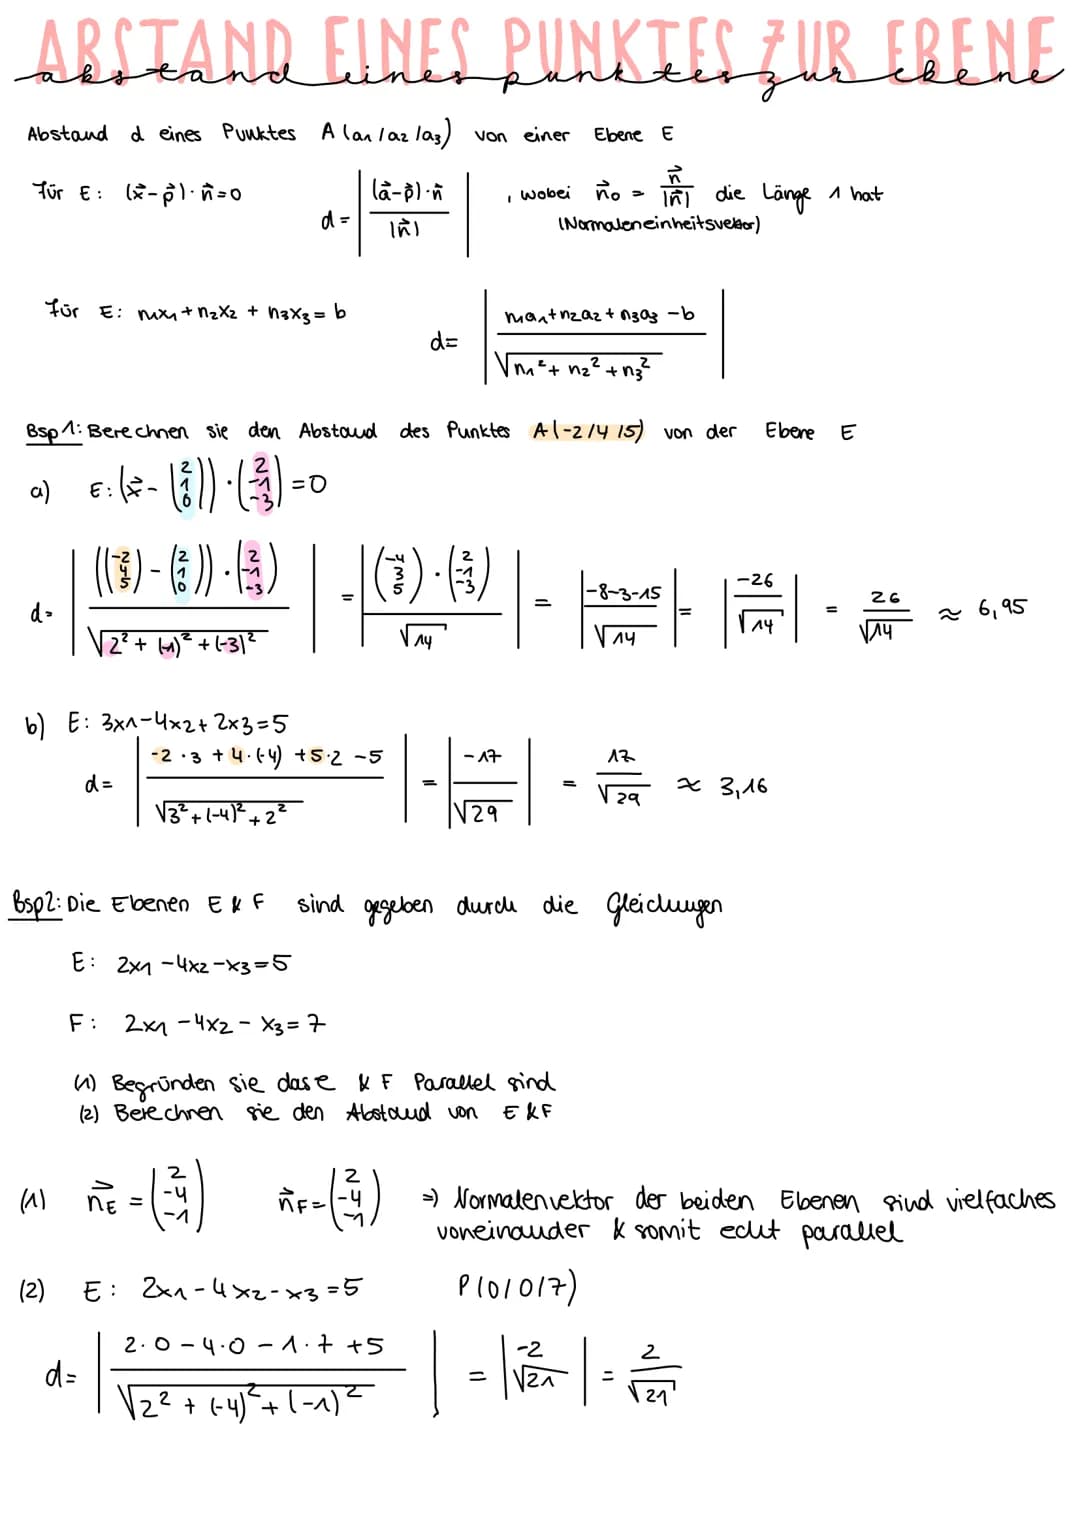 ABSTAND EINES PUNKTES ZUR EBENE
abstand eines punktes zur ebene
Abstand d eines Punktes A (a₁/a₂/a₃) von einer Ebene E
Für E: (x⃗-p⃗)·n⃗=0 d = | (a⃗-p⃗)·n⃗ / |n⃗| | , wobei n⃗₀ = n⃗ / |n⃗| die Länge 1 hat
(Normaleneinheitsvektor)
Für E: n₁x₁+n₂x₂ + n₃x₃ = b d= | n₁a₁+n₂a₂+n₃a₃ -b / √n₁²+ n₂²+n₃² |
Bsp 1: Berechnen sie den Abstand des Punktes A(-2/4/5) von der Ebene E
a) E: (x⃗ - (2 1 0)) · (2 -1 -3) = 0
d= | ((-2 4 5) - (2 1 0)) · (2 -1 -3) / √2²+(-1)²+(-3)² | = | (-4 3 5) · (2 -1 -3) / √14 | = | -8-3-15 / √14 | = | -26 / √14 | = 26 / √14 ≈ 6,95
b) E: 3x1-4x2+2x3=5
d= | -2·3 + 4·(-4) +5·2 -5 / √3²+(-4)²+2² | = | -17 / √29 | = 17 / √29 ≈ 3,16
Bsp2: Die Ebenen E & F sind gegeben durch die Gleichungen
E: 2x1 -4x2-x3=5
F: 2x1 -4x2- x3=7
(1) Begründen sie dass E & F Parallel sind
(2) Berechnen sie den Abstand von E & F
(1) n⃗E = (2 -4 -1) n⃗F = (2 -4 -1) => Normalenvektor der beiden Ebenen sind vielfaches
voneinander & somit echt parallel
(2) E: 2x1-4x2-x3=5 P(0/0/7)
d= | 2·0 -4·0 -1·7 +5 / √2² + (-4)²+(-1)² | = | -2 / √21 | = 2 / √21